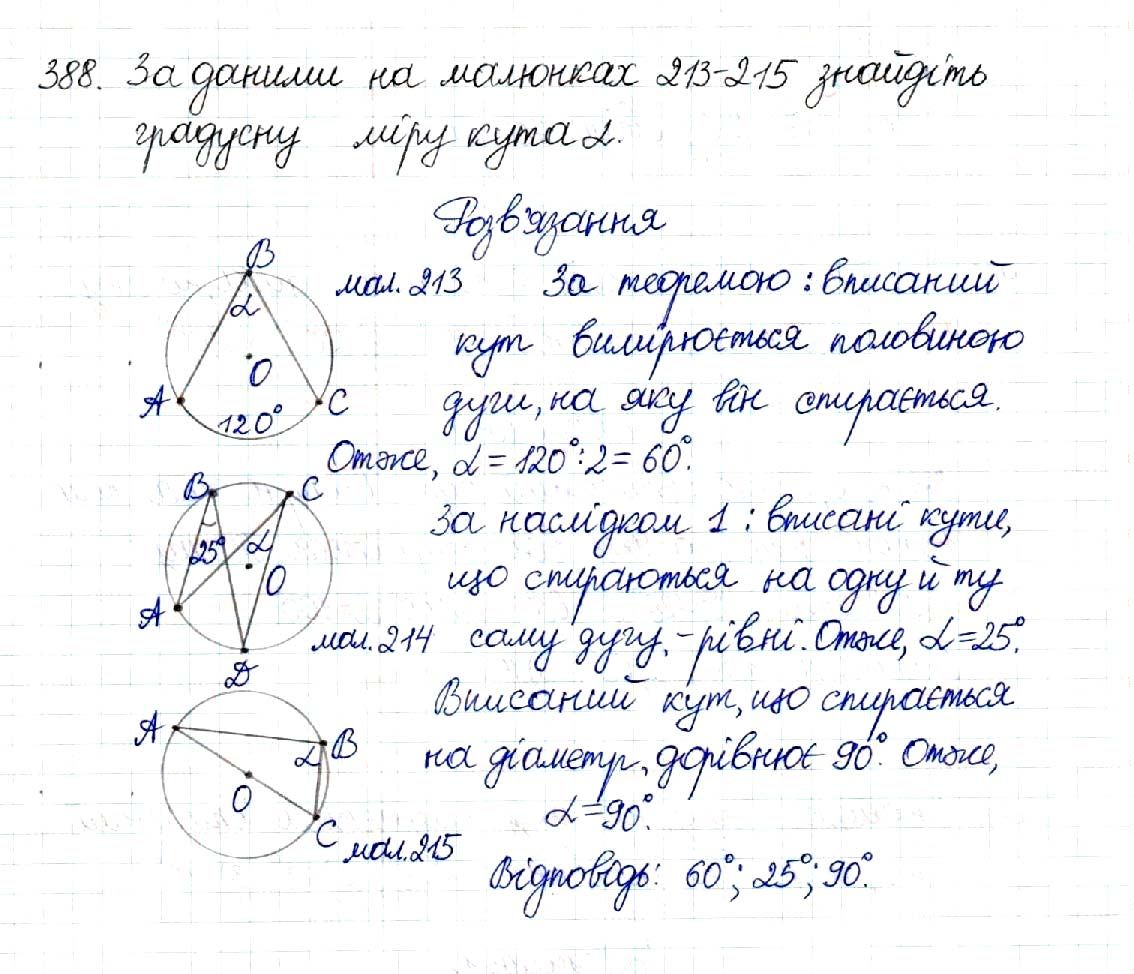 388. За даними на малюнках 213-215 знайдіть
градусну міру кута α.
Розв'язання
B
мал. 213 За теоремою: вписаний
α
кут вимірюється половиною
O
A C дуги, на яку він спирається.
120°
Отже, α = 120°:2 = 60°.
B C
За наслідком 1: вписані кути,
25° α
що спираються на одну й ту
O
A
мал. 214 саму дугу, - рівні. Отже, α=25°.
D
Вписаний кут, що спирається
A
α B на діаметр, дорівнює 90°. Отже,
O
α=90°.
C мал. 215
Відповідь: 60°; 25°; 90°.